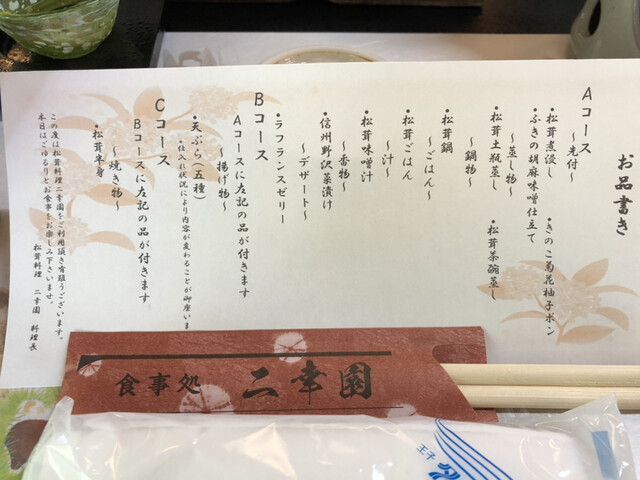 お品書き
Aコース
～先付～
・松茸煮浸し　・きのこ菊花柚子ポン
・ふきの胡麻味噌仕立て
～蒸し物～
・松茸土瓶蒸し　・松茸茶碗蒸し
～鍋物～
・松茸鍋
～ごはん～
・松茸ごはん
～汁～
・松茸味噌汁
～香物～
・信州野沢菜漬け
～デザート～
・ラフランスゼリー
Bコース
Aコースに左記の品が付きます
～揚げ物～
・天ぷら（五種）
・仕入れ状況により内容が変わることが御座いま
Cコース
Bコースに左記の品が付きます
～焼き物～
・松茸単身
この度は松茸料理二幸園をご利用頂き有難うございます。
本日はごゆるりとお食事をお楽しみ下さいませ。
松茸料理　二幸園　料理長
食事処　二幸園
王子